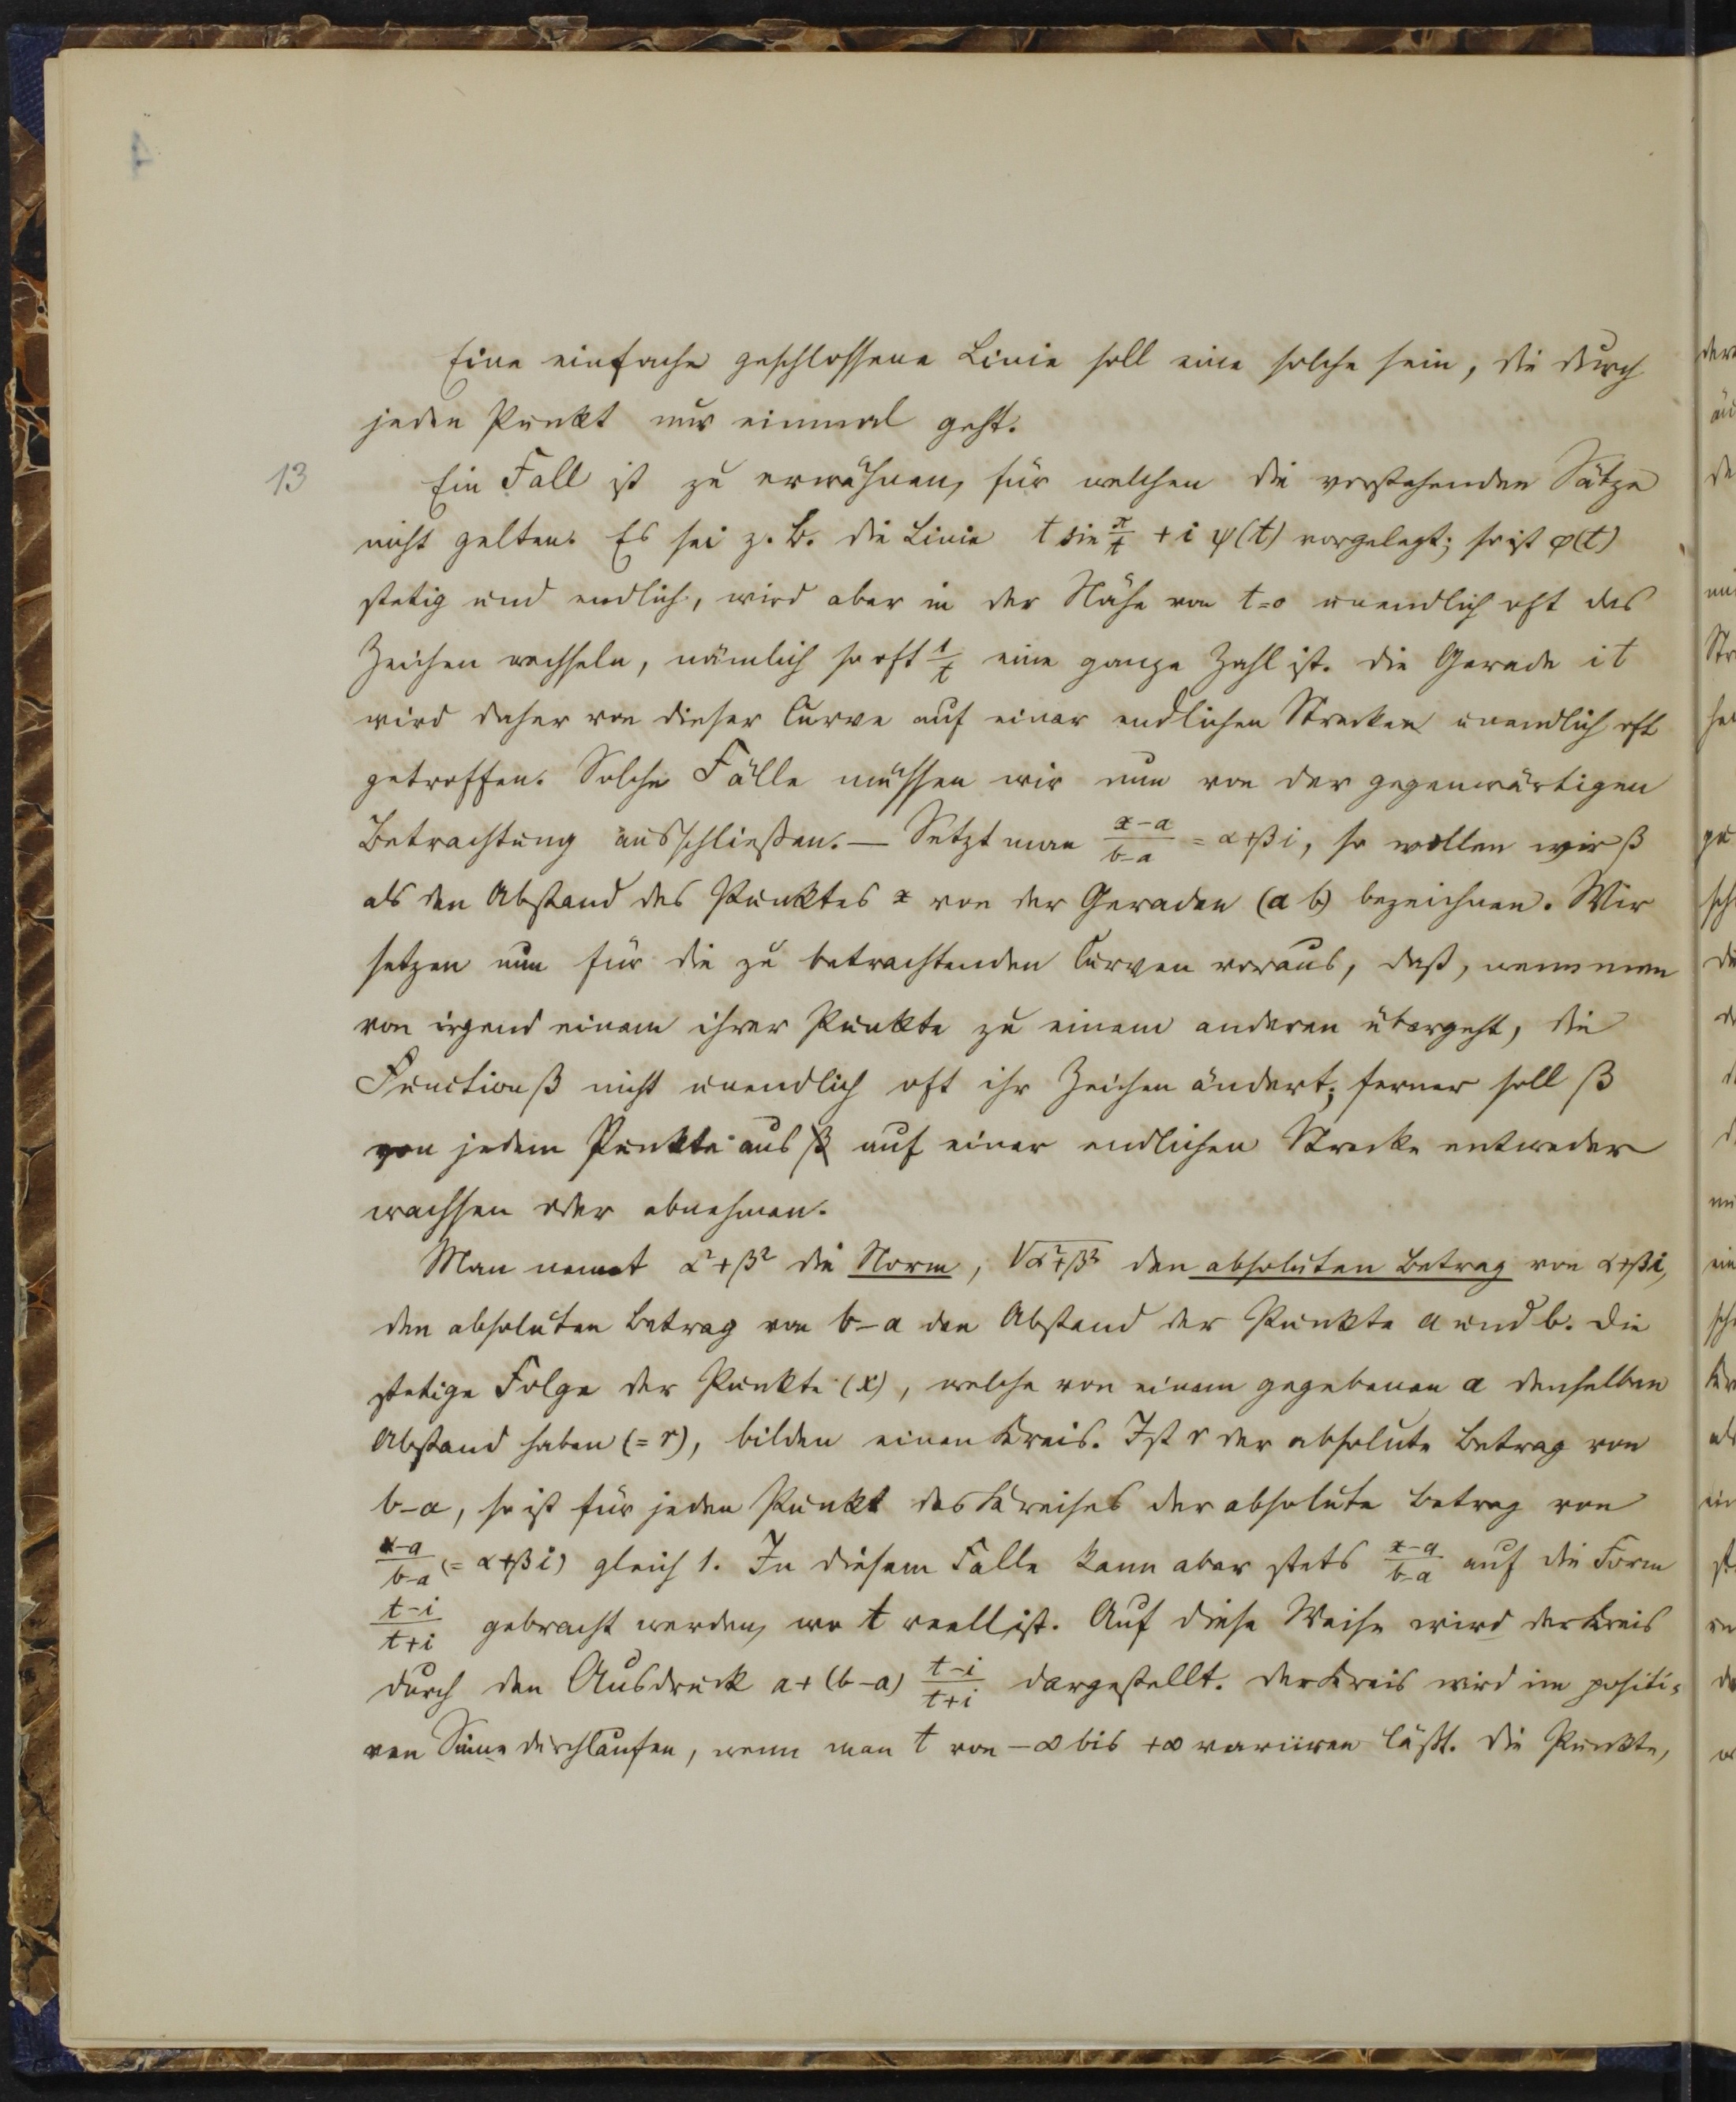 Eine einfache geschlossene Linie soll eine solche sein, die durch
jeden Punkt nur einmal geht.
13
Ein Fall ist zu erwähnen, für welchen die vorstehenden Sätze
nicht gelten. Es sei z. B. die Linie t sin π/t + i ψ(t) vorgelegt; so ist φ(t)
stetig und endlich, wird aber in der Nähe von t=0 unendlich oft das
Zeichen wechseln, nämlich so oft 1/t eine ganze Zahl ist. Die Gerade it
wird daher von dieser Curve auf einer endlichen Strecken unendlich oft
getroffen. Solche Fälle müssen wir nun von der gegenwärtigen
Betrachtung ausschließen. — Setzt man (x-a)/(b-a) = α+βi, so wollen wir β
als den Abstand des Punktes x von der Geraden (a b) bezeichnen. Wir
setzen nun für die zu betrachtenden Curven voraus, daß, wenn man
von irgend einem ihrer Punkte zu einem anderen übergeht, die
Function β nicht unendlich oft ihr Zeichen ändert; ferner soll β
von jedem Punkte aus auf einer endlichen Strecke entweder
wachsen oder abnehmen.
Man nennt α²+β² die Norm, √(α²+β²) den absoluten Betrag von α+βi,
den absoluten Betrag von b-a den Abstand der Punkte a und b. Die
stetige Folge der Punkte (x), welche von einem gegebenen a denselben
Abstand haben (= r), bilden einen Kreis. Ist r der absolute Betrag von
b-a, so ist für jeden Punkt des Kreises der absolute Betrag von
(x-a)/(b-a) (= α+βi) gleich 1. In diesem Falle kann aber stets (x-a)/(b-a) auf die Form
(t-i)/(t+i) gebracht werden, wo t reell ist. Auf diese Weise wird der Kreis
durch den Ausdruck a+(b-a) (t-i)/(t+i) dargestellt. Der Kreis wird im positi=
ven Sinne durchlaufen, wenn man t von -∞ bis +∞ variiren läßt. Die Punkte,